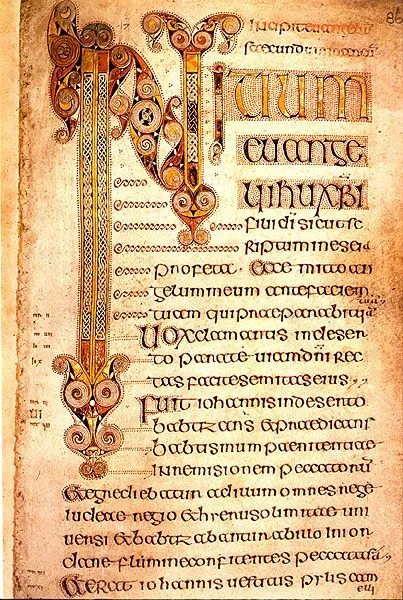 86
INITIUM
euange
lii ihu xpi
filii di sicut sc
riptum in eseia
profeta. Ecce mitto an
gelum meum ante faciem
tuam qui praeparabit uiā
tuam
Uox clamantis in deser
to parate uiam dni rec
tas facite semitas eius
Fuit iohannis in deserto
babtizans & praedicans
babtismum paenitentiae
in remisionem peccatorū
& egrediebatur ad illum omnes
iudeae regio & hierusolimitae uni
uersi & babtizabantur ab illo in ior
dane flumine confitentes peccata sua
& erat iohannis uestitus pylis cam